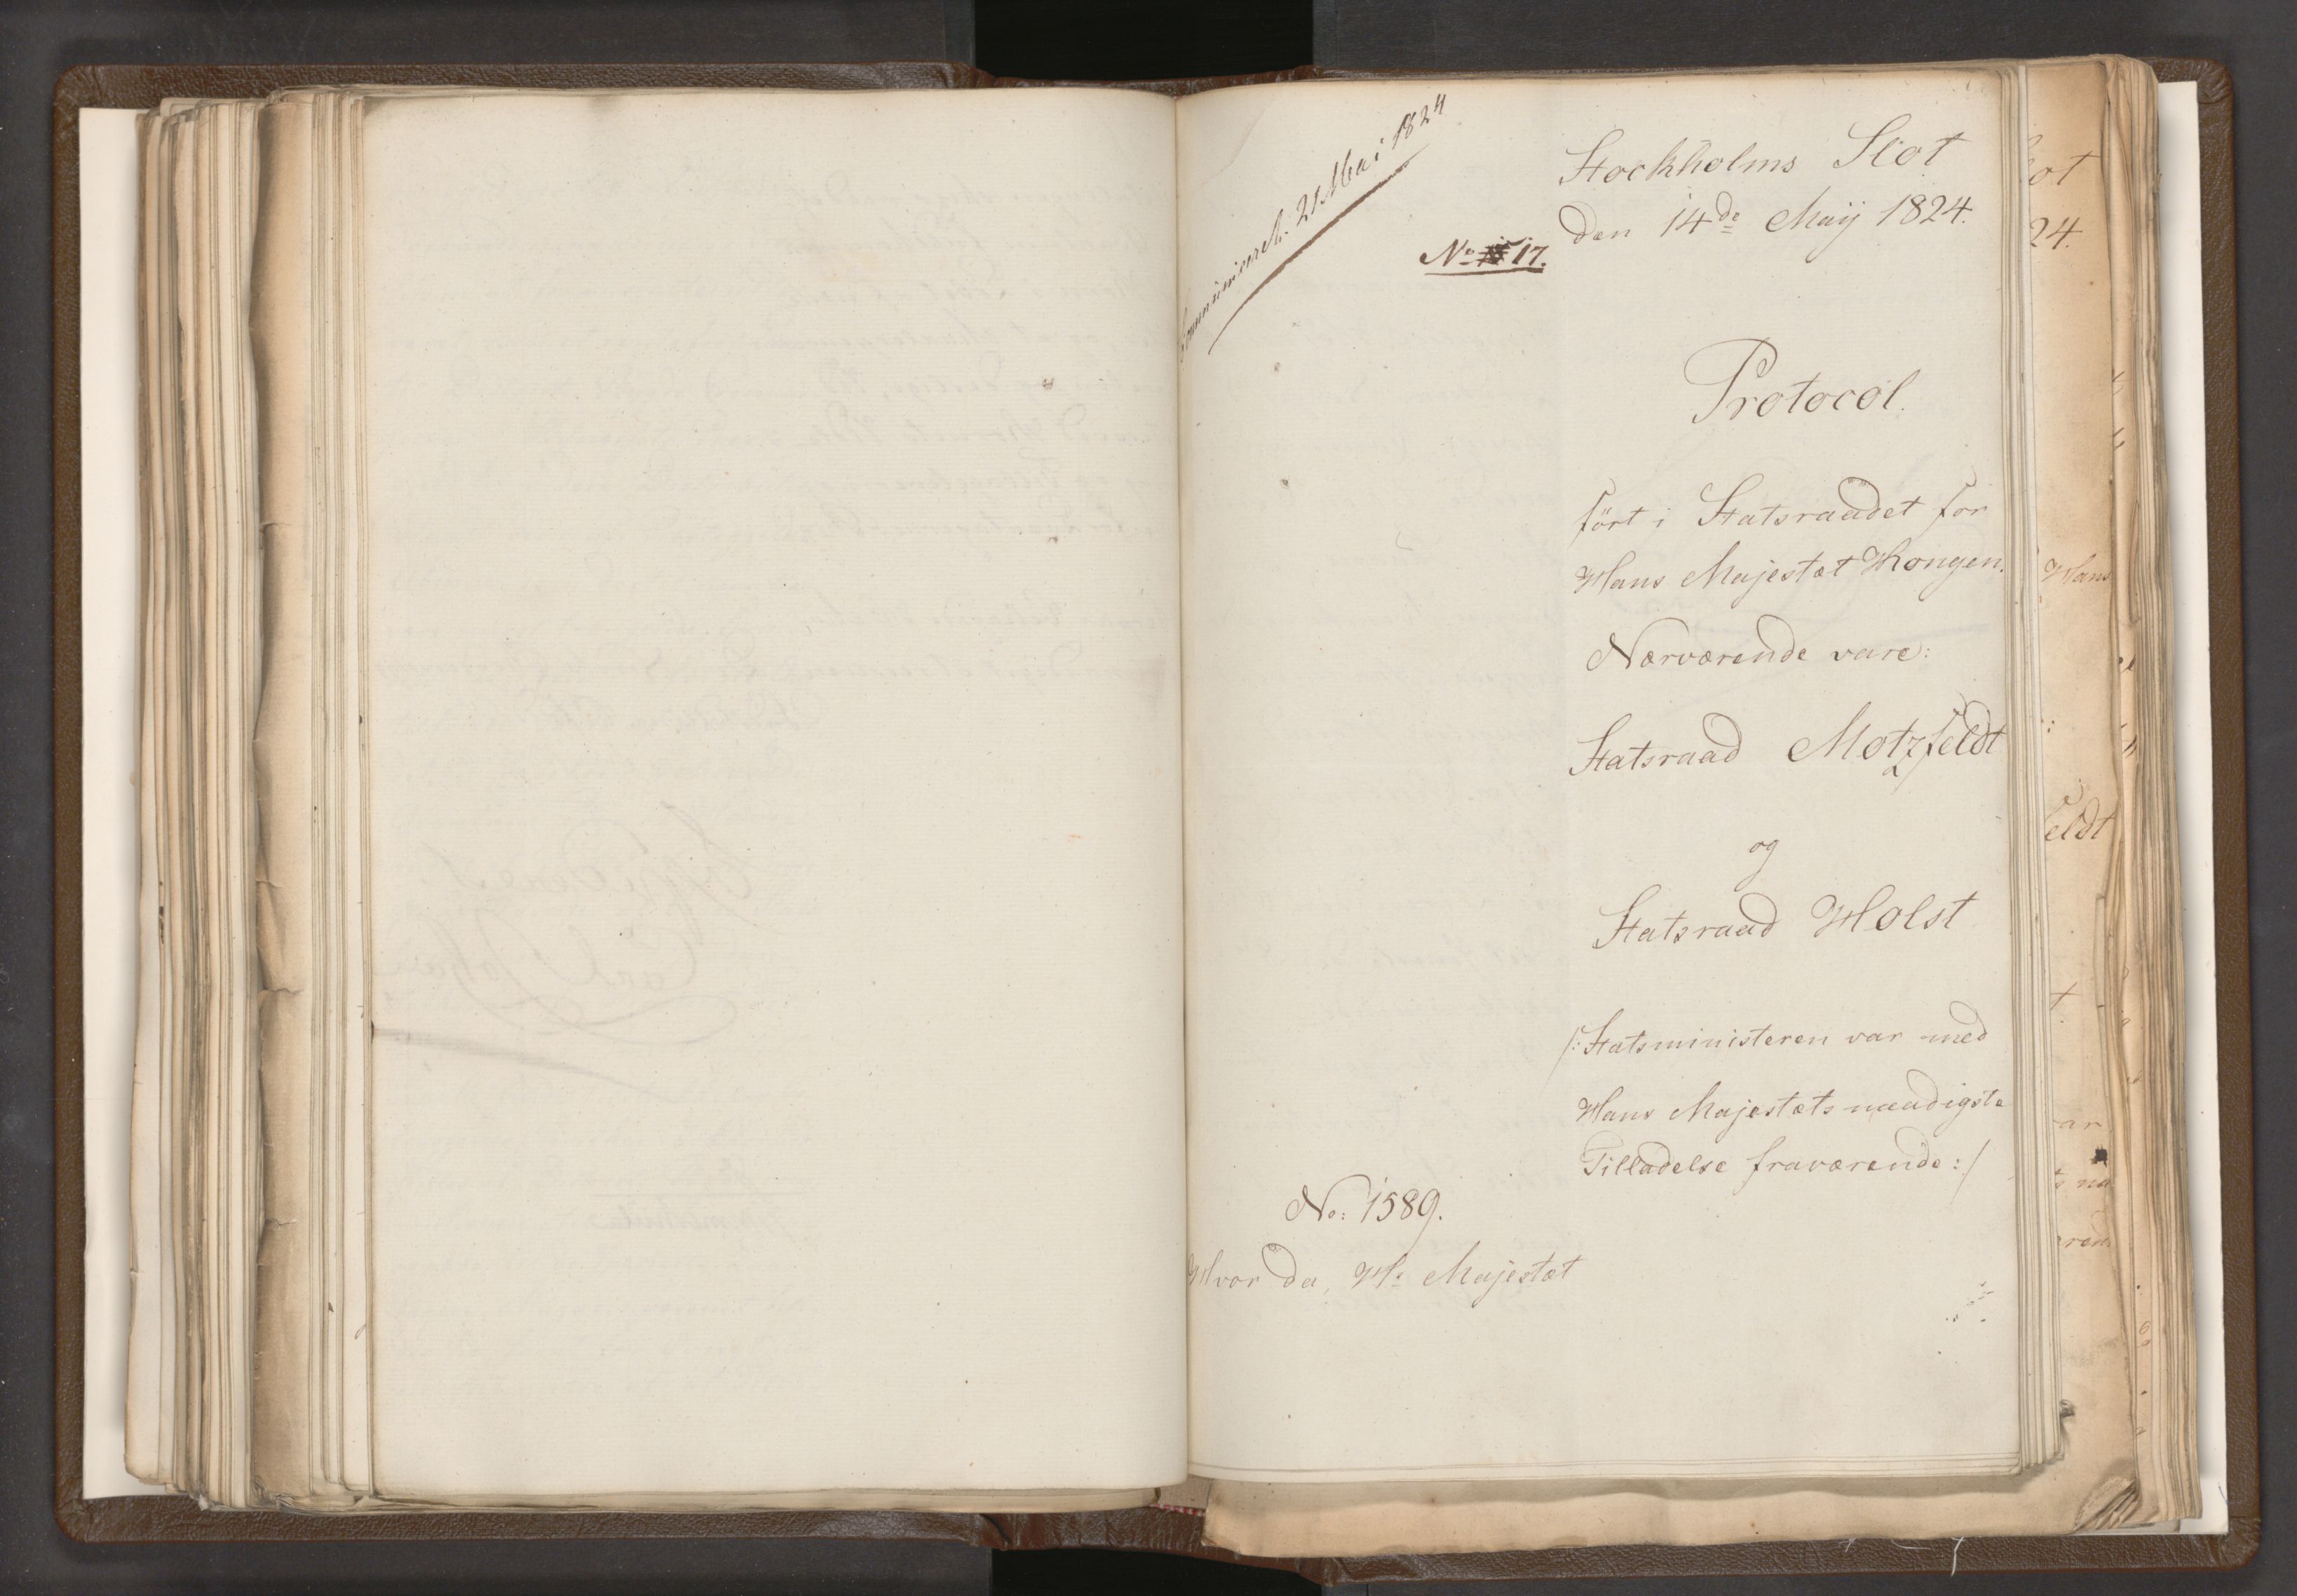 Communiceret. 21 Mai 1824
Stockholms Slot
den 14de Maij 1824.
No 17.
Protocol
fört i Statsraadet for
Hans Majestæt Kongen.
Nærværende vare:
Statsraad Motzfeldt
og
Statsraad Holst
/: Statsministeren var med
Hans Majestæts naadigste
Tilladelse fraværende :/
No: 1589.
Hvor da, Hs Majestæt
ot
24.
Hans
eldt
ar